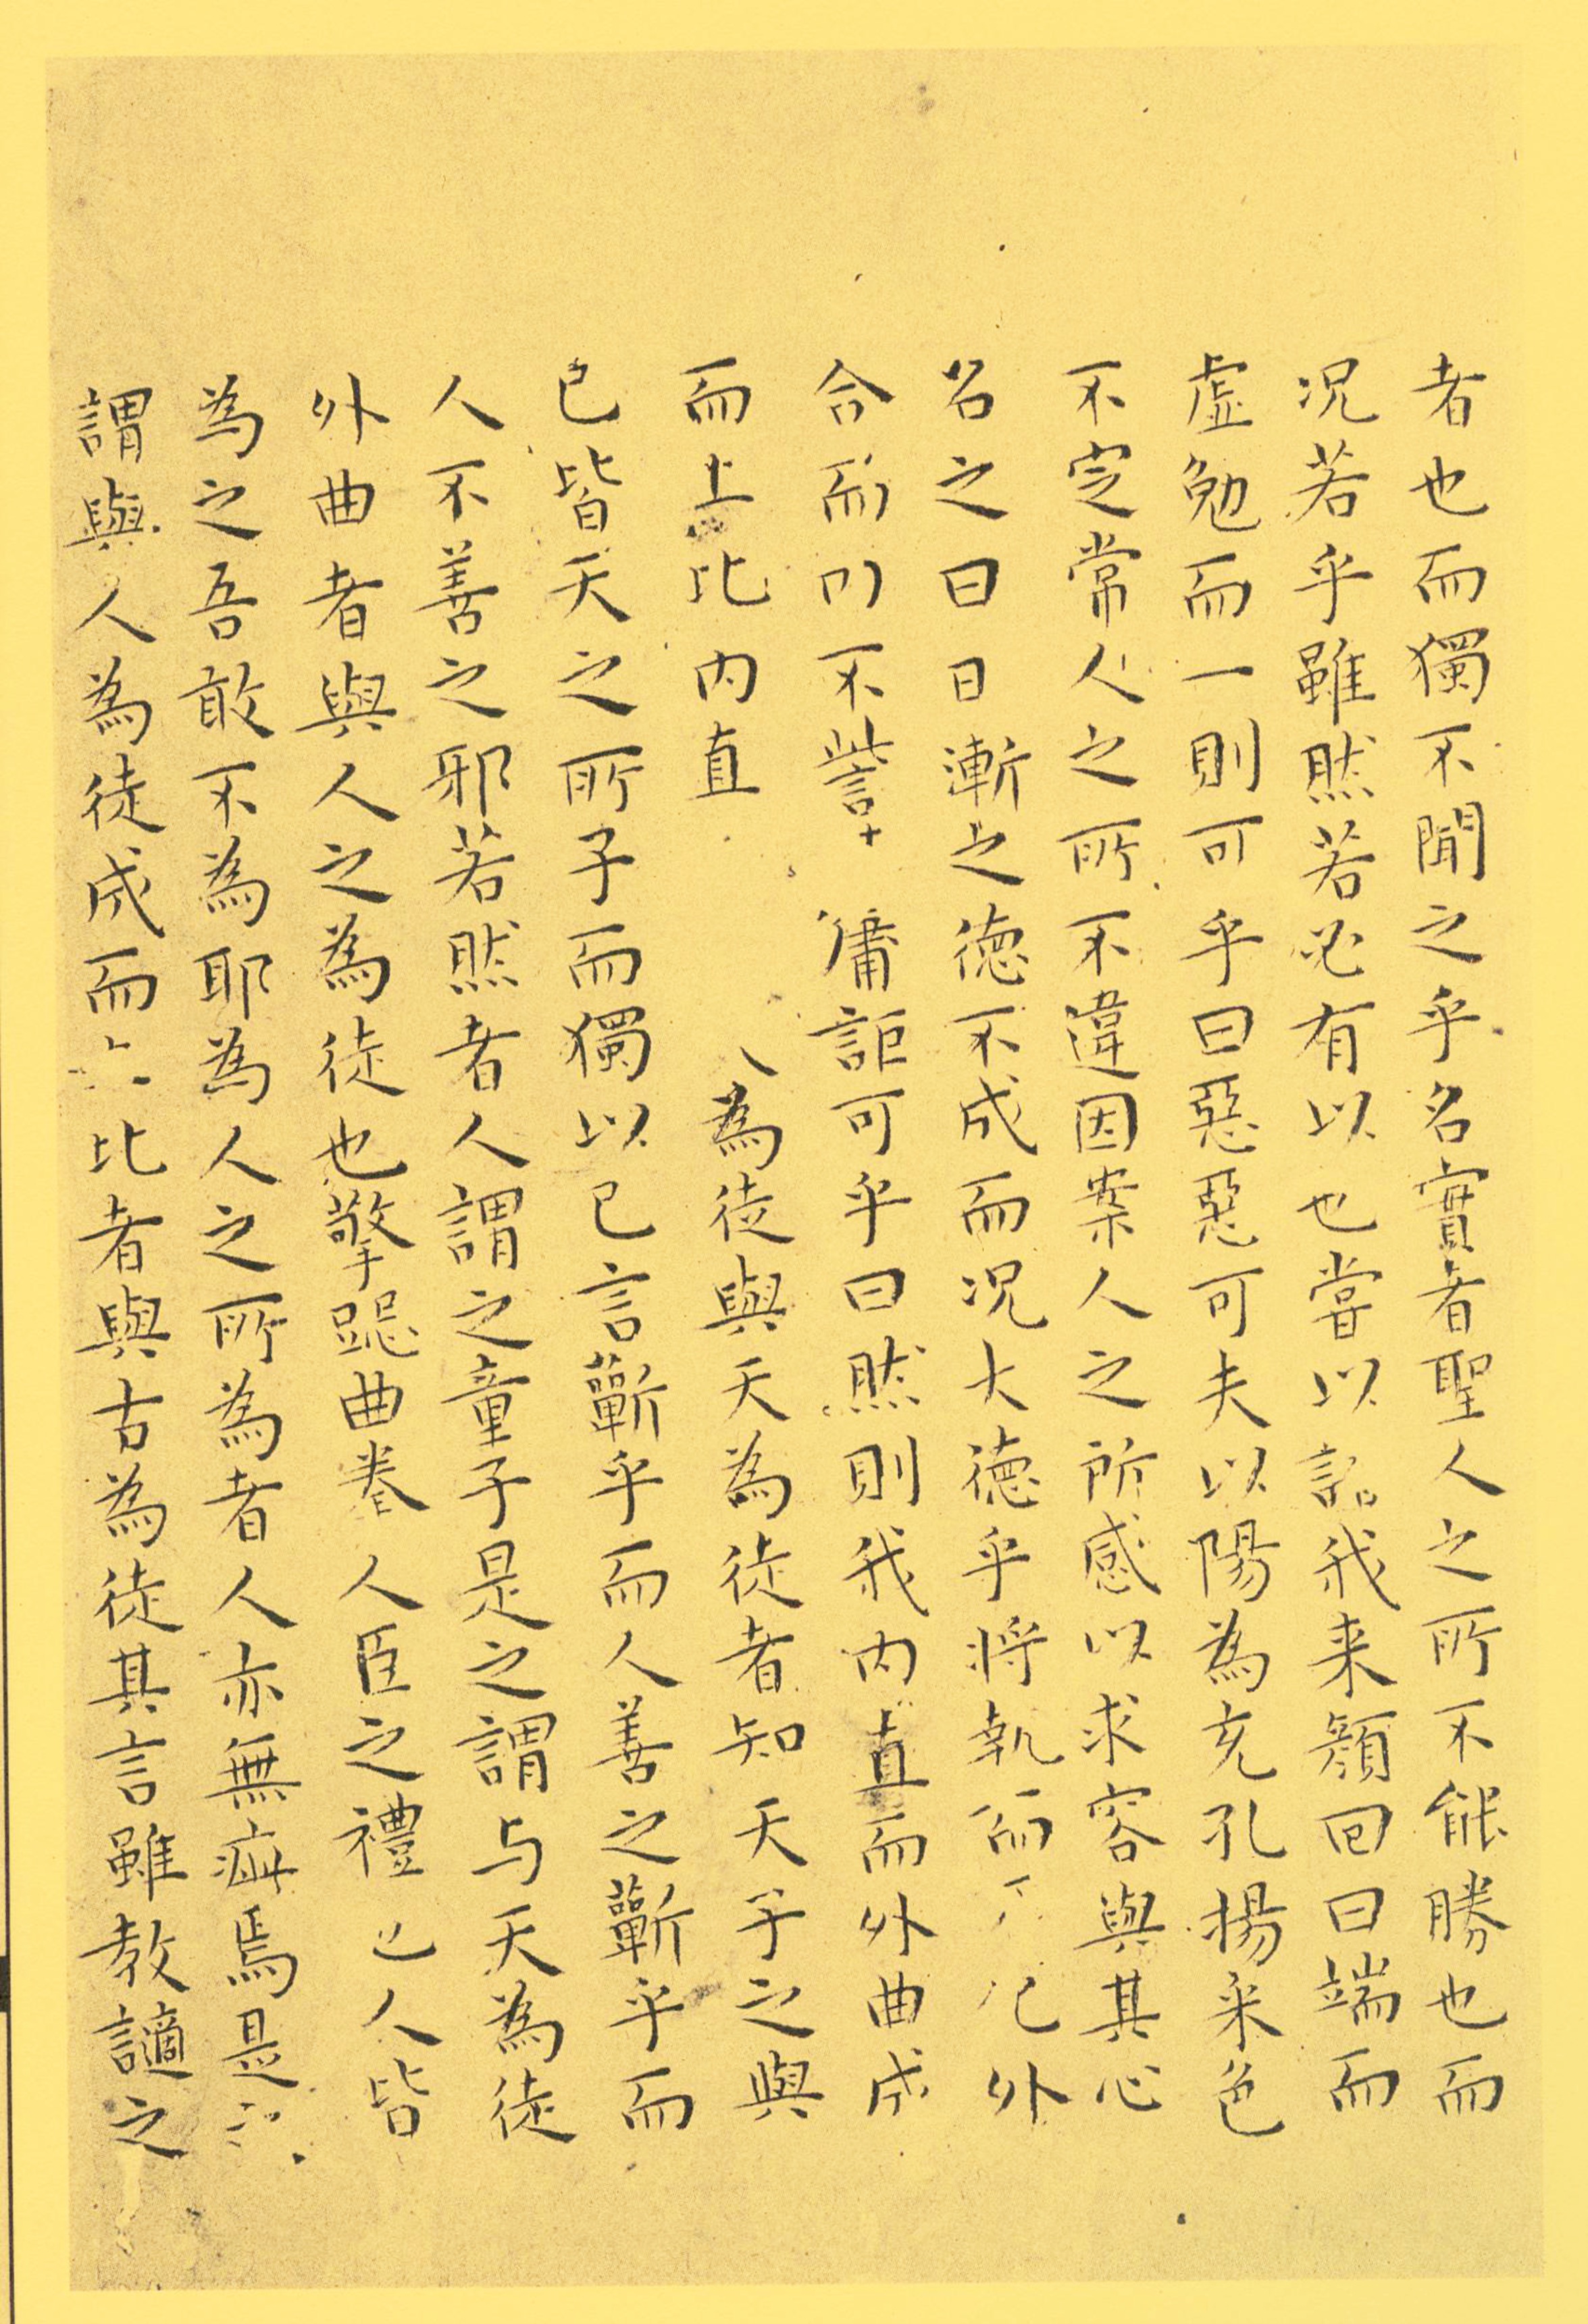 者也而獨不聞之乎名實者聖人之所不能勝也而
况若乎雖然若必有以也嘗以語我来顏回曰端而
虛勉而一則可乎曰惡惡可夫以陽為充孔揚采色
不定常人之所不違因案人之所感以求容與其心
名之曰日漸之德不成而况大德乎將執而 外
合而 不訾 庸詎可乎曰然則我内直而外曲成
而上比内直 為徒與天為徒者知天子之與
己皆天之所子而獨以己言蘄乎而人善之蘄乎而
人不善之邪若然者人謂之童子是之謂与天為徒
外曲者與人之為徒也擎跽曲拳人臣之禮 人皆
為之吾敢不為耶為人之所為者人亦無疵焉是
謂與人為徒成而 比者與古為徒其言雖教讁之